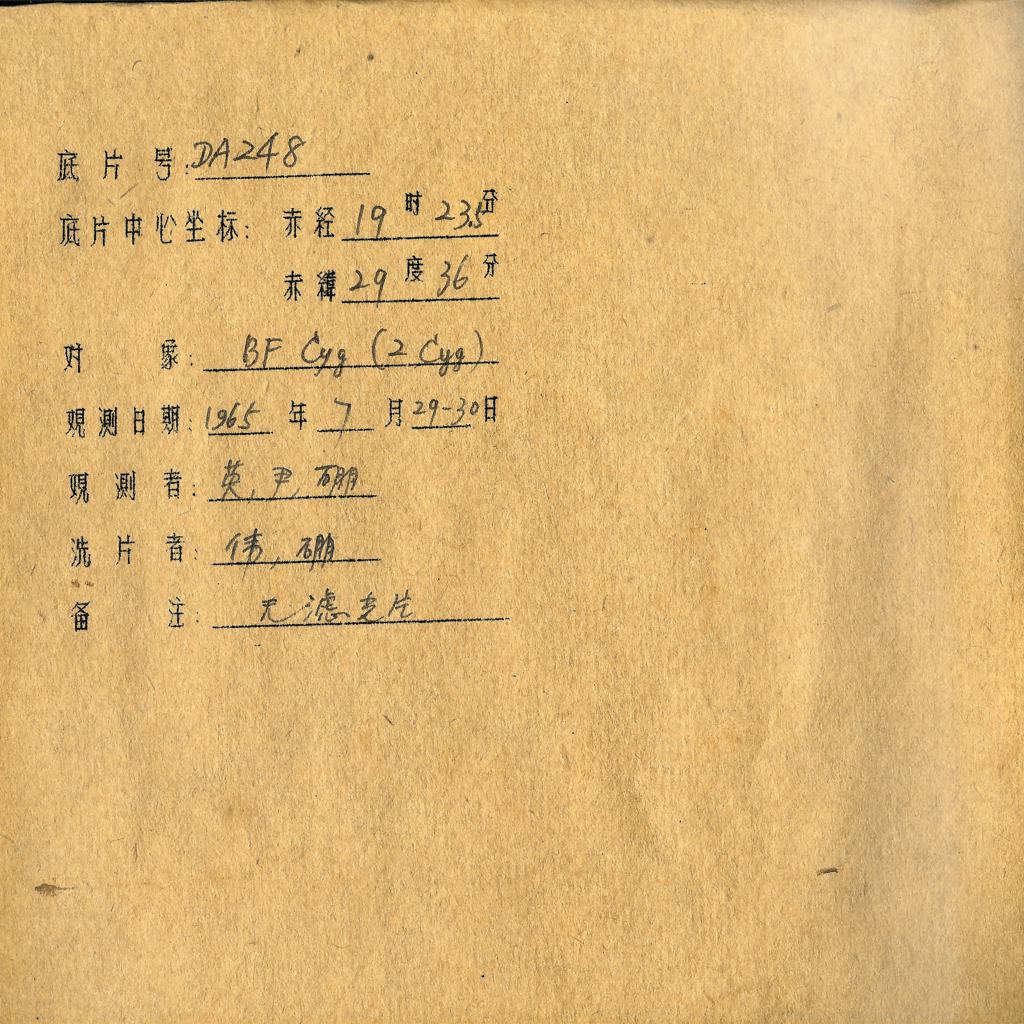 底片号: DA248
底片中心坐标: 赤经 19 时 23.5 分
赤緯 29 度 36 分
对象: BF Cyg (2 Cyg)
观测日期: 1965 年 7 月 29-30 日
观测者: 英, 尹, 硼
洗片者: 伟, 硼
备注: 无滤光片